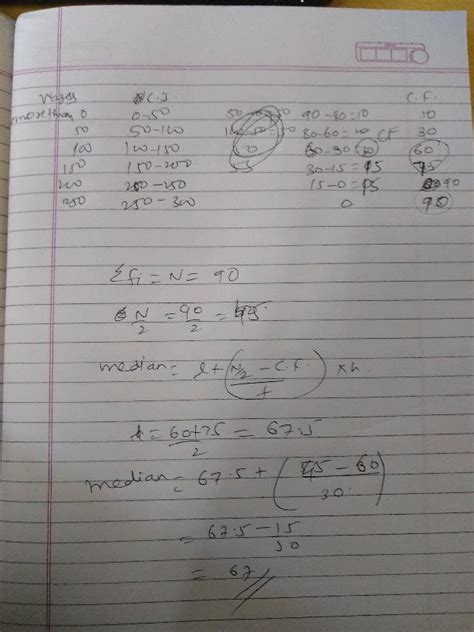 Wages C.I. C.F.
more than 0 0-50 90-80=10 10
50 50-100 80-60=20 CF 30
100 100-150 60-30 30 60
150 150-200 30-15=15 75
200 200-250 15-0=15 90
250 250-300 0 90
Σfi = N = 90
N/2 = 90/2 = 45
median = l + (N/2 - C.f. / f) × h
l = 60+75/2 = 67.5
median = 67.5 + (45 - 60 / 30)
= 67.5 - 15/30
= 67